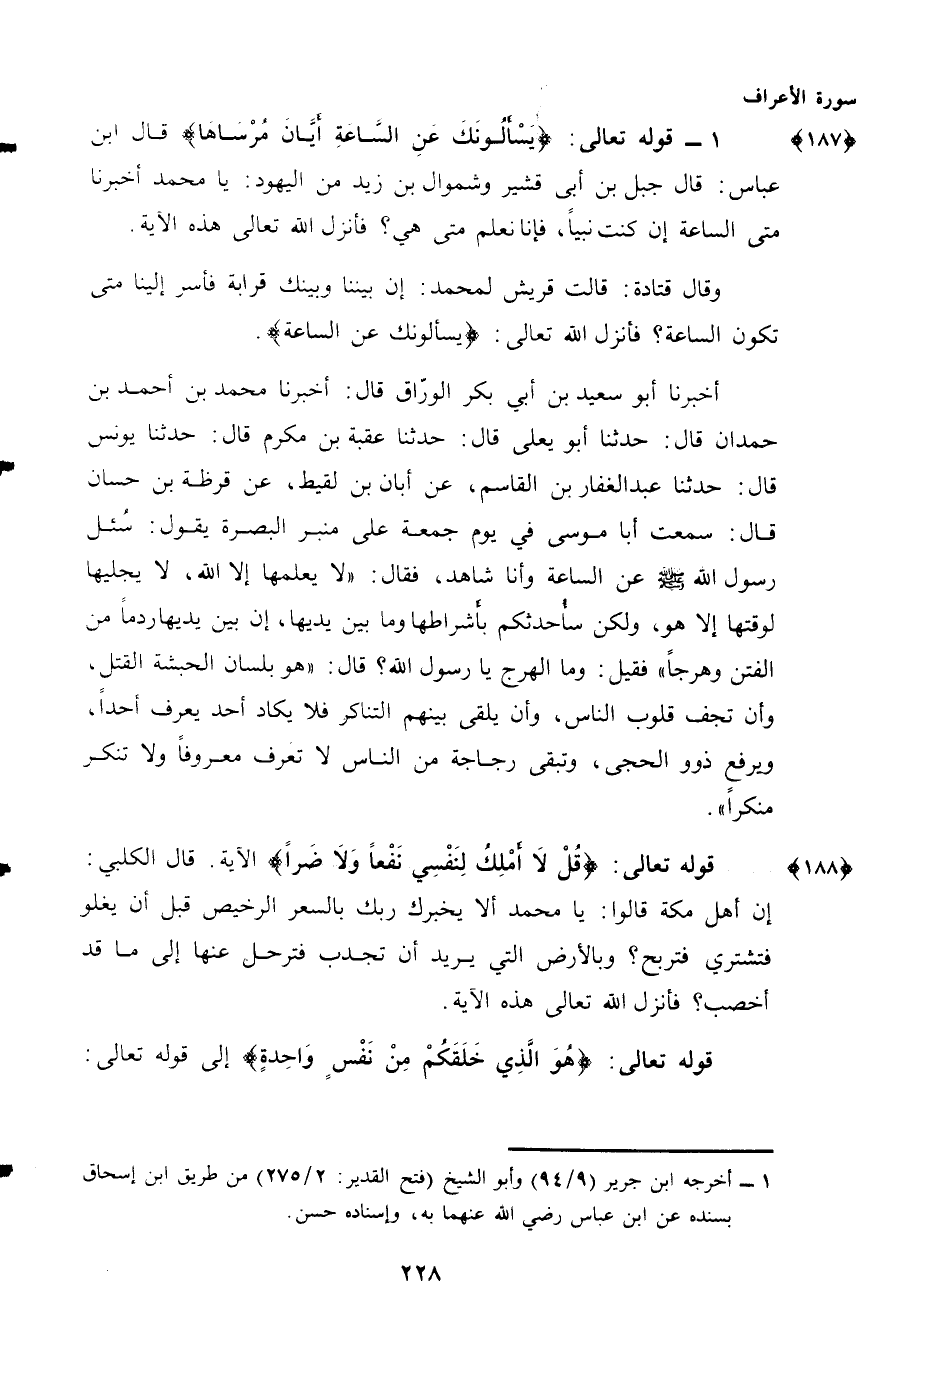 سورة الأعراف
﴿١٨٧﴾ ١ ــ قوله تعالى: ﴿يَسْأَلُونَكَ عَنِ السَّاعَةِ أَيَّانَ مُرْسَاهَا﴾ قال ابن
عباس: قال جبل بن أبى قشير وشموال بن زيد من اليهود: يا محمد أخبرنا
متى الساعة إن كنت نبياً، فإنا نعلم متى هي؟ فأنزل الله تعالى هذه الآية.
وقال قتادة: قالت قريش لمحمد: إن بيننا وبينك قرابة فأسر إلينا متى
تكون الساعة؟ فأنزل الله تعالى: ﴿يسألونك عن الساعة﴾.
أخبرنا أبو سعيد بن أبي بكر الورّاق قال: أخبرنا محمد بن أحمد بن
حمدان قال: حدثنا أبو يعلى قال: حدثنا عقبة بن مكرم قال: حدثنا يونس
قال: حدثنا عبدالغفار بن القاسم، عن أبان بن لقيط، عن قرظة بن حسان
قال: سمعت أبا موسى في يوم جمعة على منبر البصرة يقول: سُئل
رسول الله ﷺ عن الساعة وأنا شاهد، فقال: «لا يعلمها إلا الله، لا يجليها
لوقتها إلا هو، ولكن سأُحدثكم بأشراطها وما بين يديها، إن بين يديها ردماً من
الفتن وهرجاً» فقيل: وما الهرج يا رسول الله؟ قال: «هو بلسان الحبشة القتل،
وأن تجف قلوب الناس، وأن يلقى بينهم التناكر فلا يكاد أحد يعرف أحداً،
ويرفع ذوو الحجى، وتبقى رجاجة من الناس لا تعرف معروفاً ولا تنكر
منكراً».
﴿١٨٨﴾ قوله تعالى: ﴿قُلْ لَا أَمْلِكُ لِنَفْسِي نَفْعاً وَلَا ضَراً﴾ الآية. قال الكلبي:
إن أهل مكة قالوا: يا محمد ألا يخبرك ربك بالسعر الرخيص قبل أن يغلو
فتشتري فتربح؟ وبالأرض التي يريد أن تجدب فترحل عنها إلى ما قد
أخصب؟ فأنزل الله تعالى هذه الآية.
قوله تعالى: ﴿هُوَ الَّذِي خَلَقَكُمْ مِنْ نَفْسٍ وَاحِدةٍ﴾ إلى قوله تعالى:
١ ــ أخرجه ابن جرير (٩/٩٤) وأبو الشيخ (فتح القدير: ٢/٢٧٥) من طريق ابن إسحاق
بسنده عن ابن عباس رضي الله عنهما به، وإسناده حسن.
٢٢٨